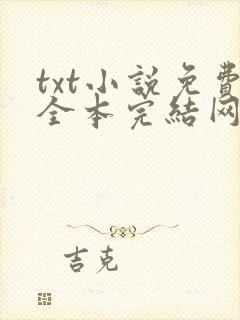 txt小説免費
全本完結网
吉克